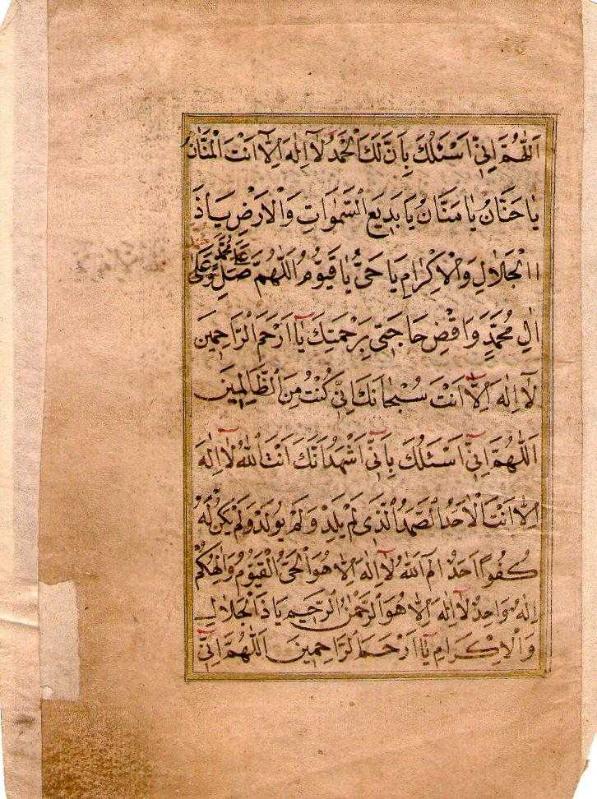 اَللّٰهُمَّ اِنِّىٓ اَسْئَلُكَ بِاَنَّ لَكَ الْحَمْدُ لَآ اِلٰهَ اِلَّآ اَنْتَ الْمَنَّانُ
يَا حَنَّانُ يَا مَنَّانُ يَا بَدِيعَ السَّمٰوَاتِ وَالْاَرْضِ يَا ذَا
الْجَلَالِ وَالْاِكْرَامِ يَا حَىُّ يَا قَيُّومُ اَللّٰهُمَّ صَلِّ عَلٰى مُحَمَّدٍ وَعَلٰى
اٰلِ مُحَمَّدٍ وَاقْضِ حَاجَتِى بِرَحْمَتِكَ يَآ اَرْحَمَ الرَّاحِمِينَ
لَآ اِلٰهَ اِلَّآ اَنْتَ سُبْحَانَكَ اِنِّى كُنْتُ مِنَ الظَّالِمِينَ
اَللّٰهُمَّ اِنِّىٓ اَسْئَلُكَ بِاَنِّىٓ اَشْهَدُ اَنَّكَ اَنْتَ اللّٰهُ لَآ اِلٰهَ
اِلَّآ اَنْتَ الْاَحَدُ الصَّمَدُ الَّذِى لَمْ يَلِدْ وَلَمْ يُولَدْ وَلَمْ يَكُنْ لَهُ
كُفُوًا اَحَدٌ الٓمٓ اَللّٰهُ لَآ اِلٰهَ اِلَّا هُوَ الْحَىُّ الْقَيُّومُ وَاِلٰهُكُمْ
اِلٰهٌ وَاحِدٌ لَآ اِلٰهَ اِلَّا هُوَ الرَّحْمٰنُ الرَّحِيمُ يَا ذَا الْجَلَالِ
وَالْاِكْرَامِ يَآ اَرْحَمَ الرَّاحِمِينَ اَللّٰهُمَّ اِنِّىٓ